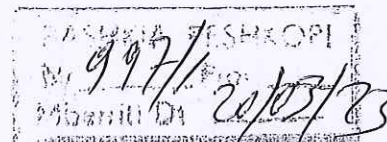 BASHKIA PESHKOPI
Nr 997/1 Prot
Mbërriti Dt 20/03/23